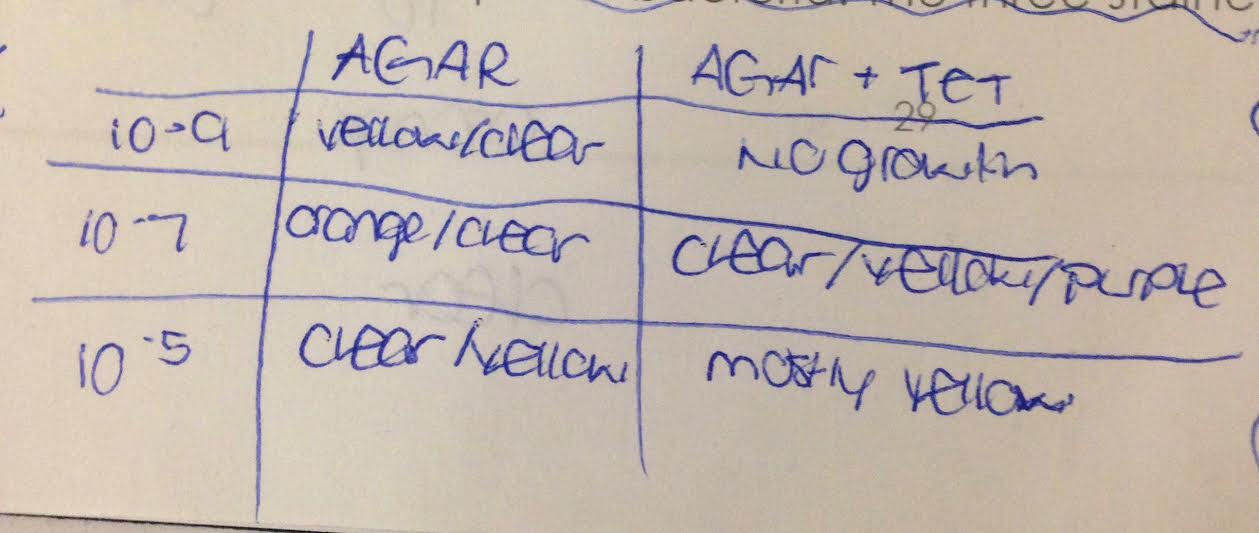 AGAR AGAr + TET
29
10-9 yellow/clear NO growth
10-7 orange/clear clear/yellow/purple
10-5 clear/yellow mostly yellow